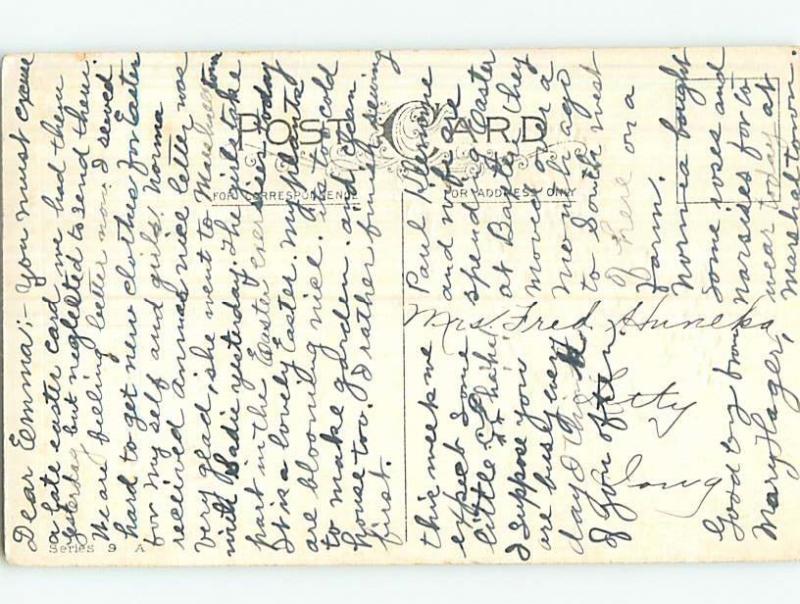 Dear Emma; - You must excuse
a late easter card, we had them
yesterday but neglelted to send them.
We are feeling better now. I sewed
hard to get new clothes for Easter
for my self and girls. Norma
received Annas nice letter was
very glad, she went to Marshalltown
with Sadie yesterday. The girls take
part in the Easter Exercises today
It is a lovely Easter. My plants
are blooming nice. it is to cold
to make garden. and clean
house too. I rather finish sewing
first.
Paul
and wife are
spending Easter
at Barts. they
moved over a
month ago
to South west
of here on a
farm.
Norma bought
some roses and
narsises for to
wear today at
Marshaltown
this week we
expect some
little
I suppose you
are busy every
day I think
of you often.
Good by from
Mary Hager,
Mrs. Fred Huneka
Iowa
POST CARD
FOR CORRESPONDENCE
FOR ADDRESS ONLY
Series 9 A